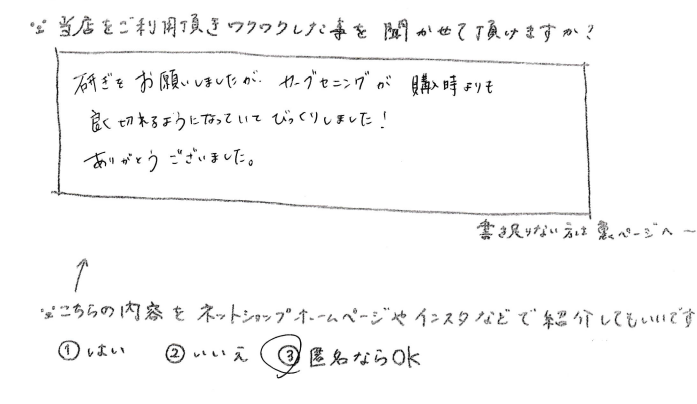 当店をご利用頂きワクワクした事を聞かせて頂けますか?
研ぎをお願いしましたが、セニングが購入時よりも
良く切れるようになっていてびっくりしました!
ありがとうございました。
書き足りない方は裏ページへ〜
こちらの内容をネットショップホームページやインスタなどで紹介してもいいです
①はい ②いいえ ③匿名ならOK